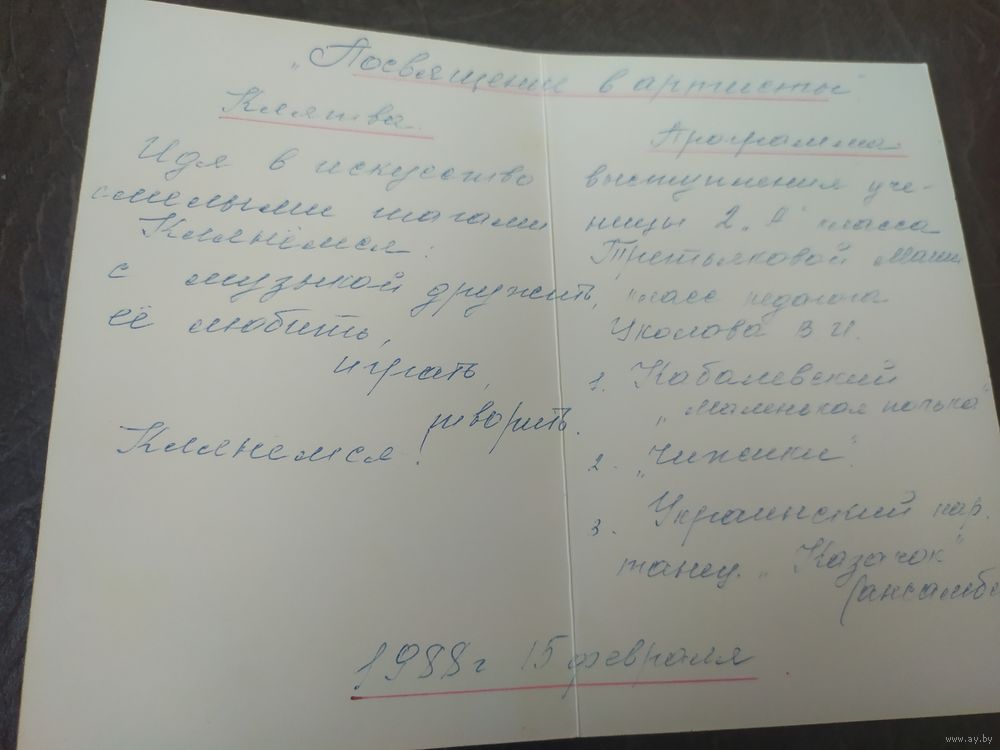 „Посвящение в артисты"
Клятва.
Идя в искусство
смелыми шагами
Клянёмся:
с музыкой дружить,
её любить,
играть,
творить.
Клянемся!
Программа
выступления уче-
ницы 2 „А" класса
Третьяковой Маши
класс педагога
Уколова В И.
1. Кабалевский
„Маленькая полька"
2. „Чижики".
3. Украинский нар.
танец. „Казачок"
(ансамбль
1988 г 15 февраля
www.ay.by